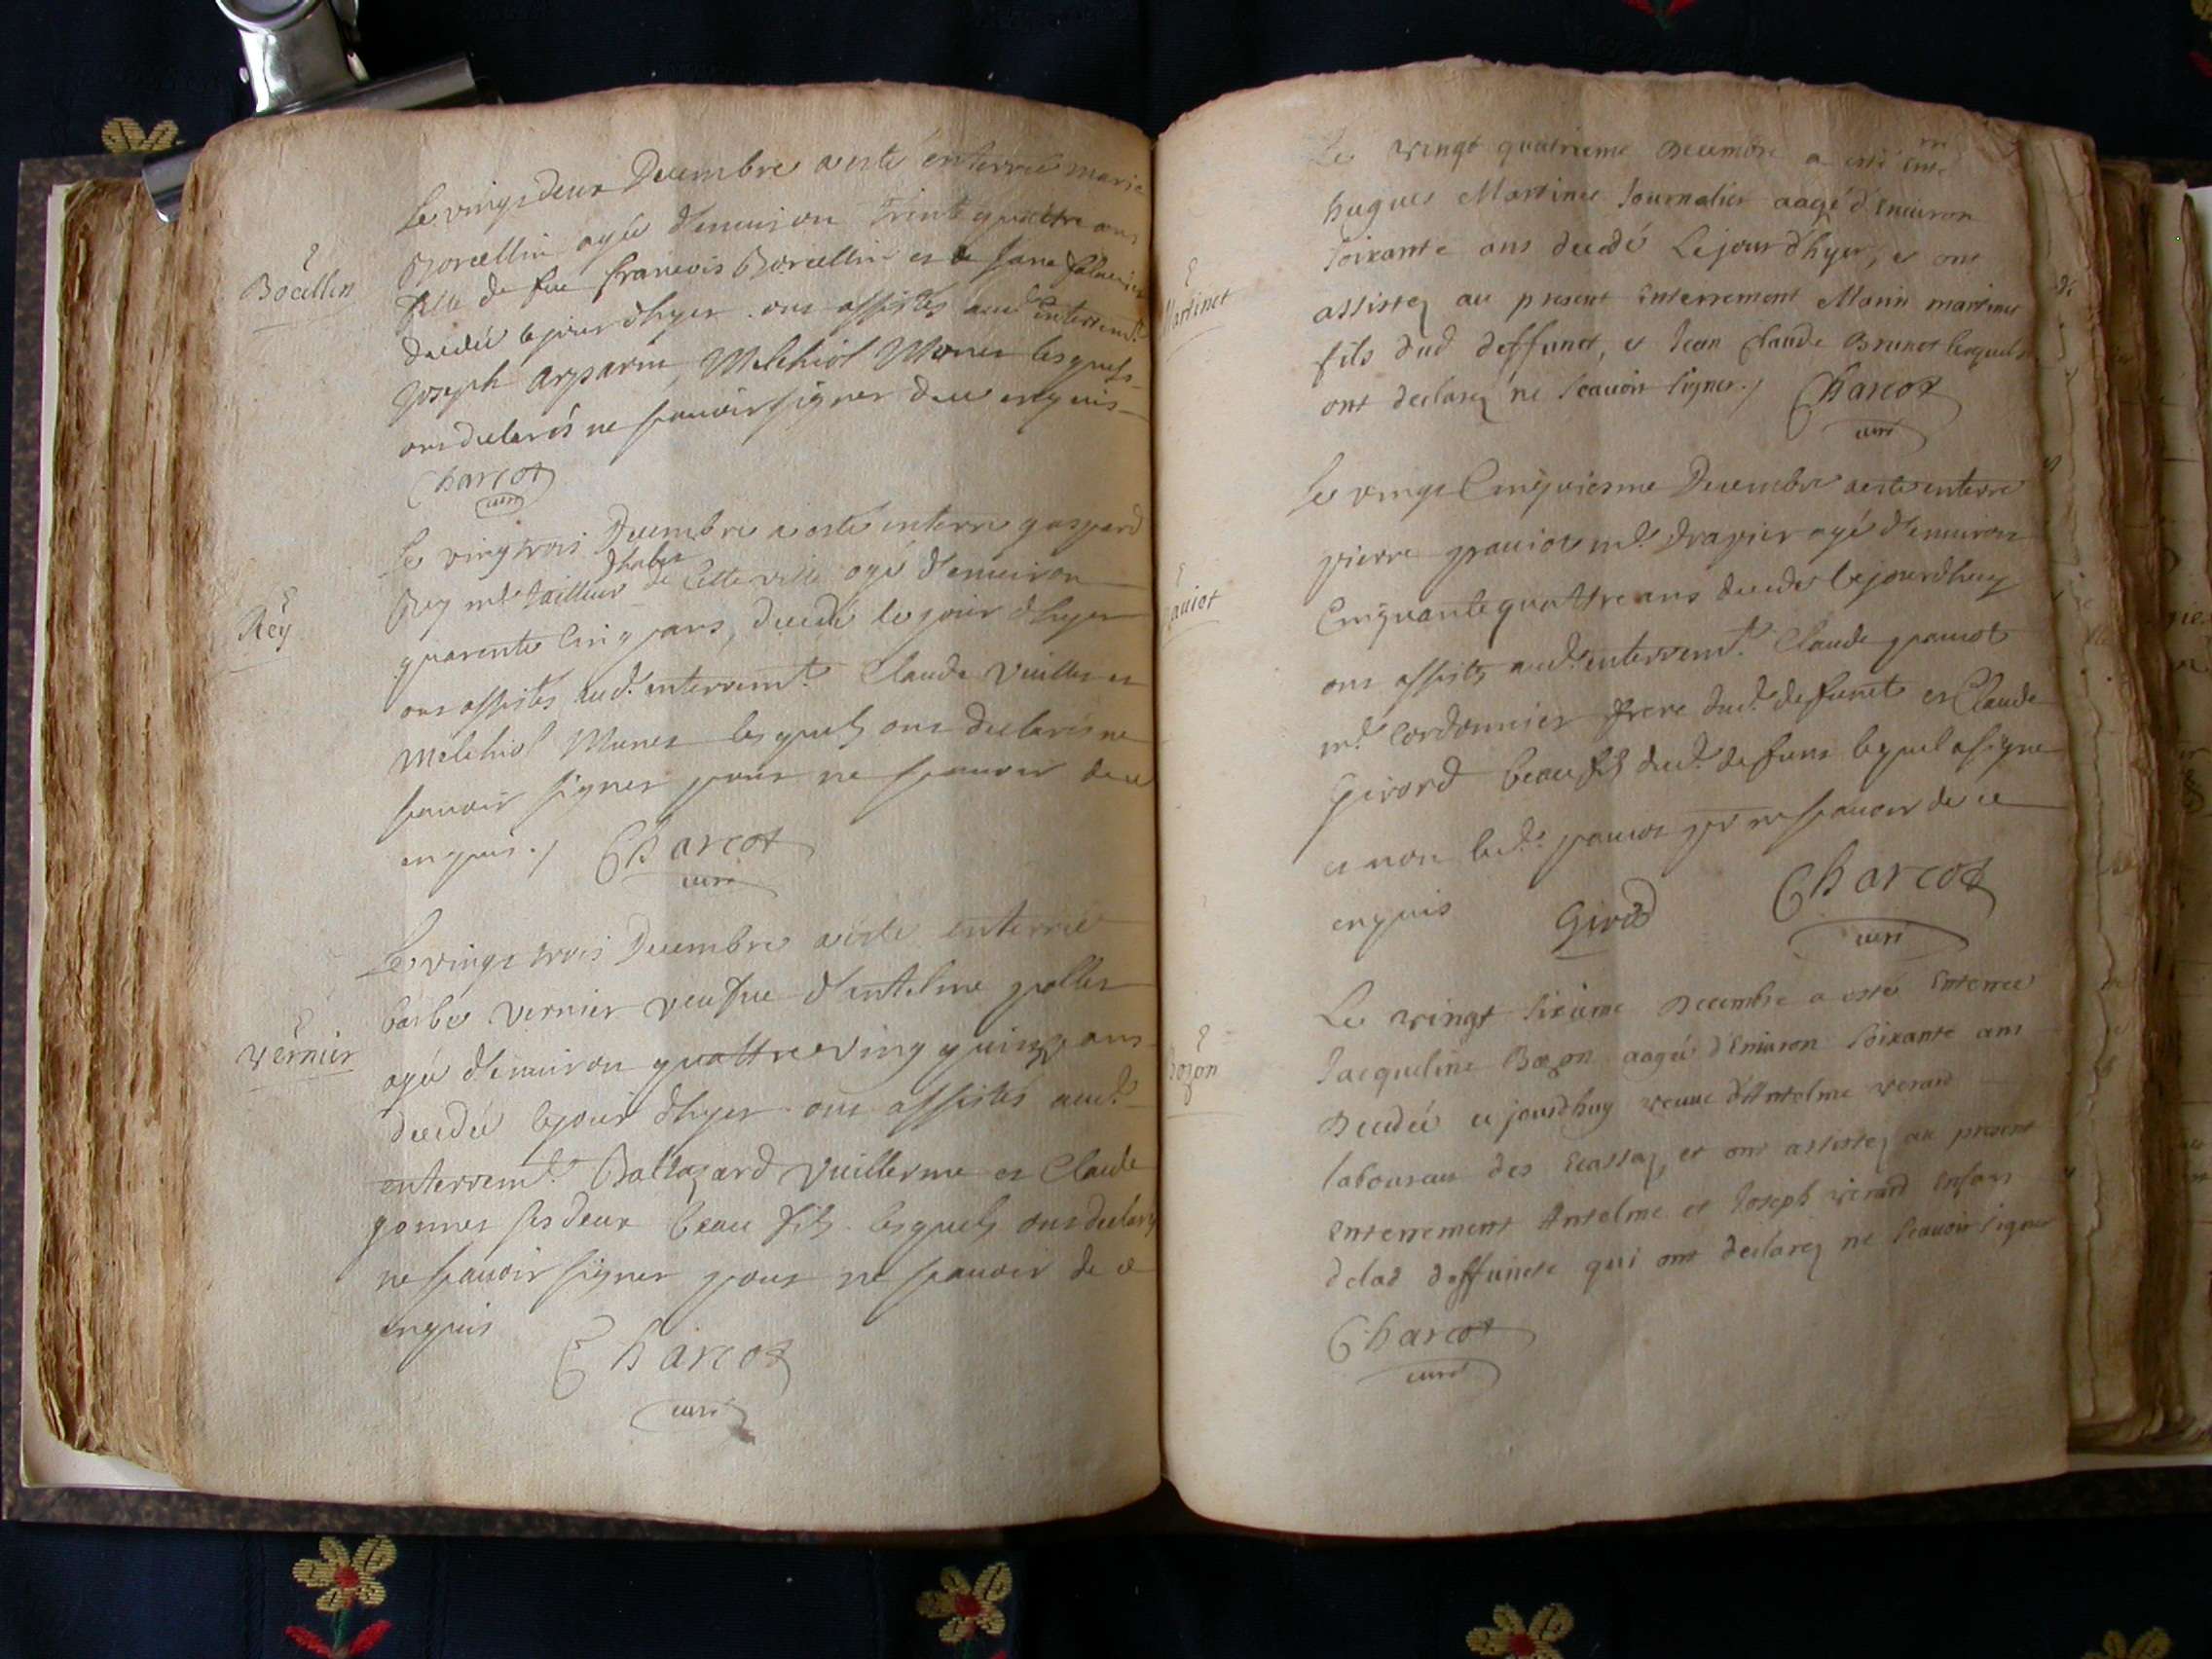 Bocellin
Le vingt deux Decembre a esté enterrée marie
Borcellin agée d'enuiron trente quattre ans
fille de feu francois Borcellin et de Jane
decedée le jour d'hyer ont assistés aud. enterremt.
Joseph Arparin, Melchiol Muner lesquels
ont declarés ne scauoir signer de ce enquis
Charcot
curé
Rey
Le vingt trois Decembre a esté enterré gaspard
Rey mᵉ tailleur d'habis de cette ville agé d'enuiron
quarente cinq ans, decedé le jour d'hyer
ont assistés aud. enterremt. Claude Vuiller et
Melchiol Muner lesquels ont declarés ne
scauoir signer pour ne scauoir de ce
enquis ./ Charcot
curé
Vernier
Le vingt trois Decembre a esté enterrée
barbe Vernier veufue d'Antelme goller
agée d'enuiron quattre ving quinze ans
decedée le jour d'hyer ont assistés aud.
enterremt. Baltazard Vuillerme et Claude
gonner ses deux beau fils lesquels ont declarés
ne scauoir signer pour ne scauoir de ce
enquis
Charcot
curé
Martinet
Le vingt quatrieme Decembre a esté enterré
hugues Martinet Journalier aagé d'Enuiron
soixante ans decedé Le jour d'hyer, et ont
assistez au present Enterrement Marin martinet
fils dud deffunct, et Jean Claude Brunet lesquels
ont declarez ne scauoir signer ./ Charcot
curé
pauiot
Le vingt Cinquiesme Decembre a esté enterré
pierre pauiot mᵈ drapier agé d'enuiron
Cinquante quattre ans decedé le jourdhuy
ont assistés aud. enterremt. Claude pauiot
mᵉ Cordonnier frere dud. defunct et Claude
Girord beau fils dud. defunt lequel a signé
et non led. pauiot pr ne scauoir de ce
enquis Girod Charcot
curé
Bozon
Le vingt sixieme Decembre a esté Enterree
Jacqueline Bozon aagée d'Enuiron soixante ans
Decedée ce jourdhuy veuue d'Antelme verard
laboureur des Ecassaz, et ont assistez au present
Enterrement Antelme et Joseph verard Enfans
delad deffuncte qui ont declarez ne scauoir signer
Charcot
curé